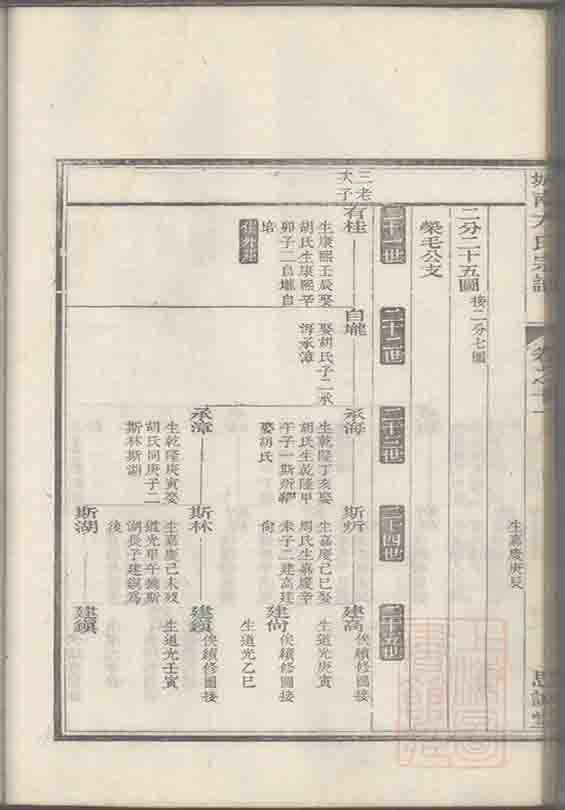 城南尤氏宗譜
卷之十一
思誠堂
生嘉慶庚辰
二分二十五圖
接二分七圖
榮毛公支
二十一世
二十二世
二十三世
二十四世
二十五世
三老
大子
有桂
生康熙壬辰娶
胡氏生康熙辛
卯子二自壠自
培
自壠
娶胡氏子二承
海承漳
承海
生乾隆丁亥娶
胡氏生乾隆甲
午子一斯炘
娶胡氏
斯炘
生嘉慶己巳娶
周氏生嘉慶辛
未子二建高建
尙
建高
俟續修圖接
生道光庚寅
建尙
俟續修圖接
生道光乙巳
承漳
生乾隆庚寅娶
胡氏同庚子二
斯林斯湖
斯林
生嘉慶己未歿
道光甲午繼斯
湖長子建鎮爲
後
建鎮
俟續修圖接
生道光壬寅
斯湖
建鎮